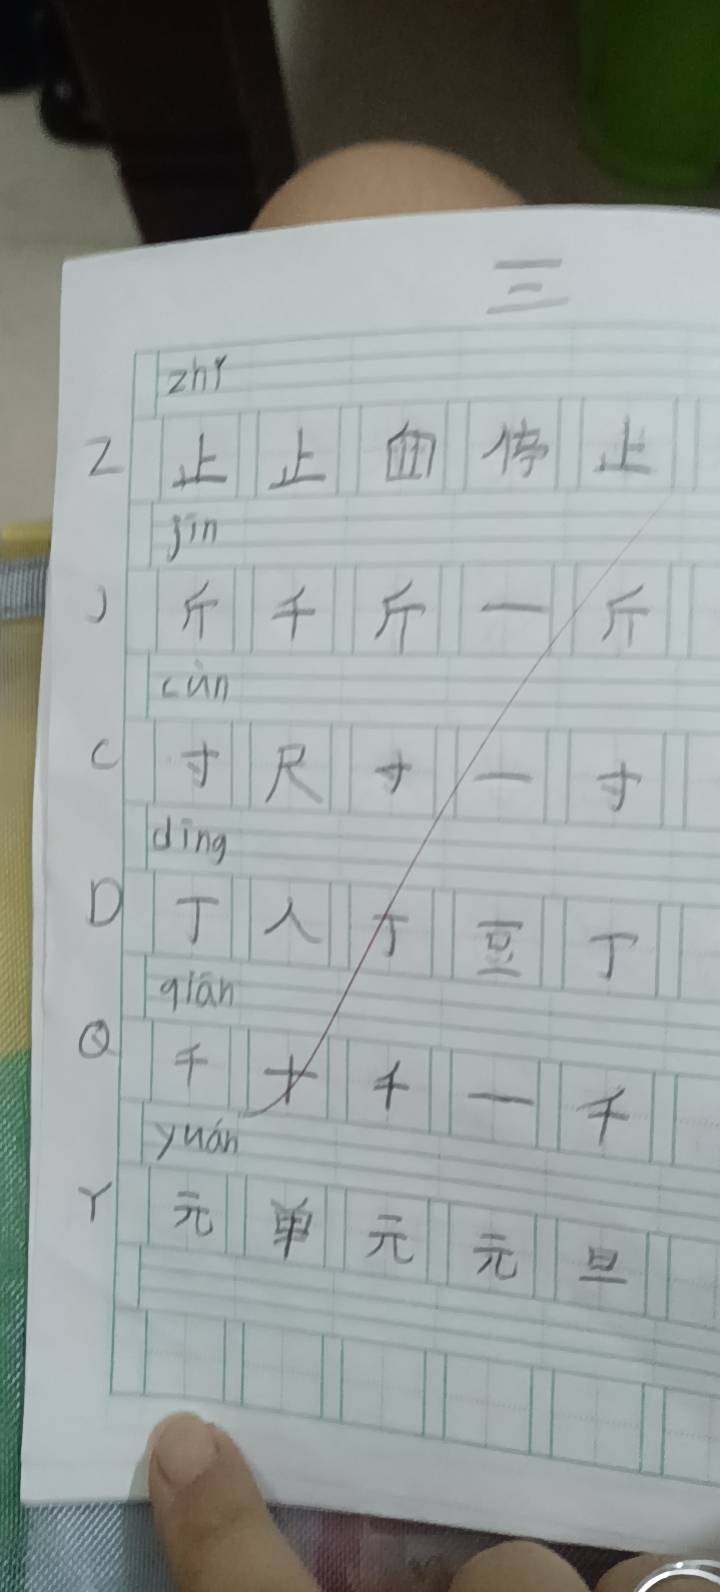 三
zhǐ
Z 止 止 血 停 止
jīn
J 斤 千 斤 一 斤
cùn
C 寸 尺 寸 一 寸
dīng
D 丁 人 丁 豆 丁
qiān
Q 千 十 千 一 千
yuán
Y 元 单 元 元 旦